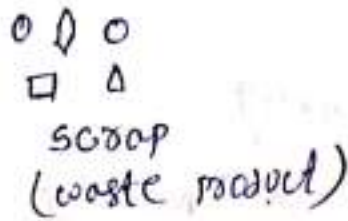 scrap
(waste product)